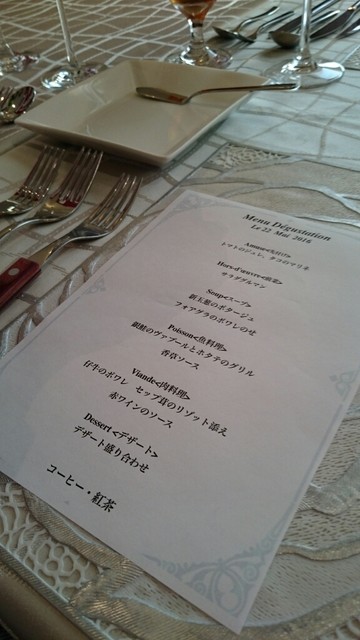 Menu Dégustation
Le 22 Mai 2016
トマトのジュレ、タコのマリネ
Hors-d'œuvre<前菜>
サラダグルマン
Soup<スープ>
新玉葱のポタージュ
フォアグラのポワレのせ
Poisson<魚料理>
銀鮭のヴァプールとホタテのグリル
香草ソース
Viande<肉料理>
仔牛のポワレ セップ茸のリゾット添え
赤ワインのソース
Dessert <デザート>
デザート盛り合わせ
コーヒー・紅茶